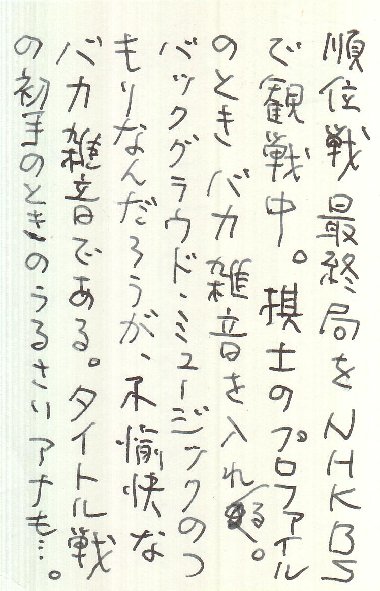 順位戦最終局をNHKBS
で観戦中。棋士のプロファイル
のときバカ雑音を入れる。
バックグラウド・ミュージックのつ
もりなんだろうが、不愉快な
バカ雑音である。タイトル戦
の初手のときのうるさいアナも…。